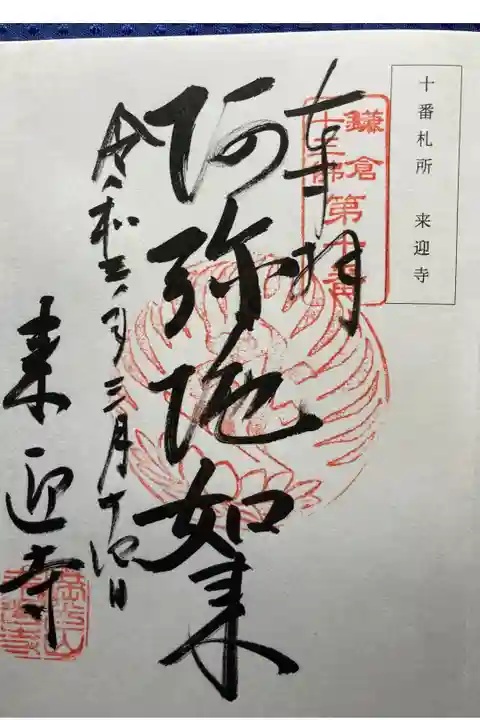 十番札所 来迎寺
鎌倉
十三佛 第十番
奉拝
阿弥陀如来
令和三年三月十四日
来迎寺